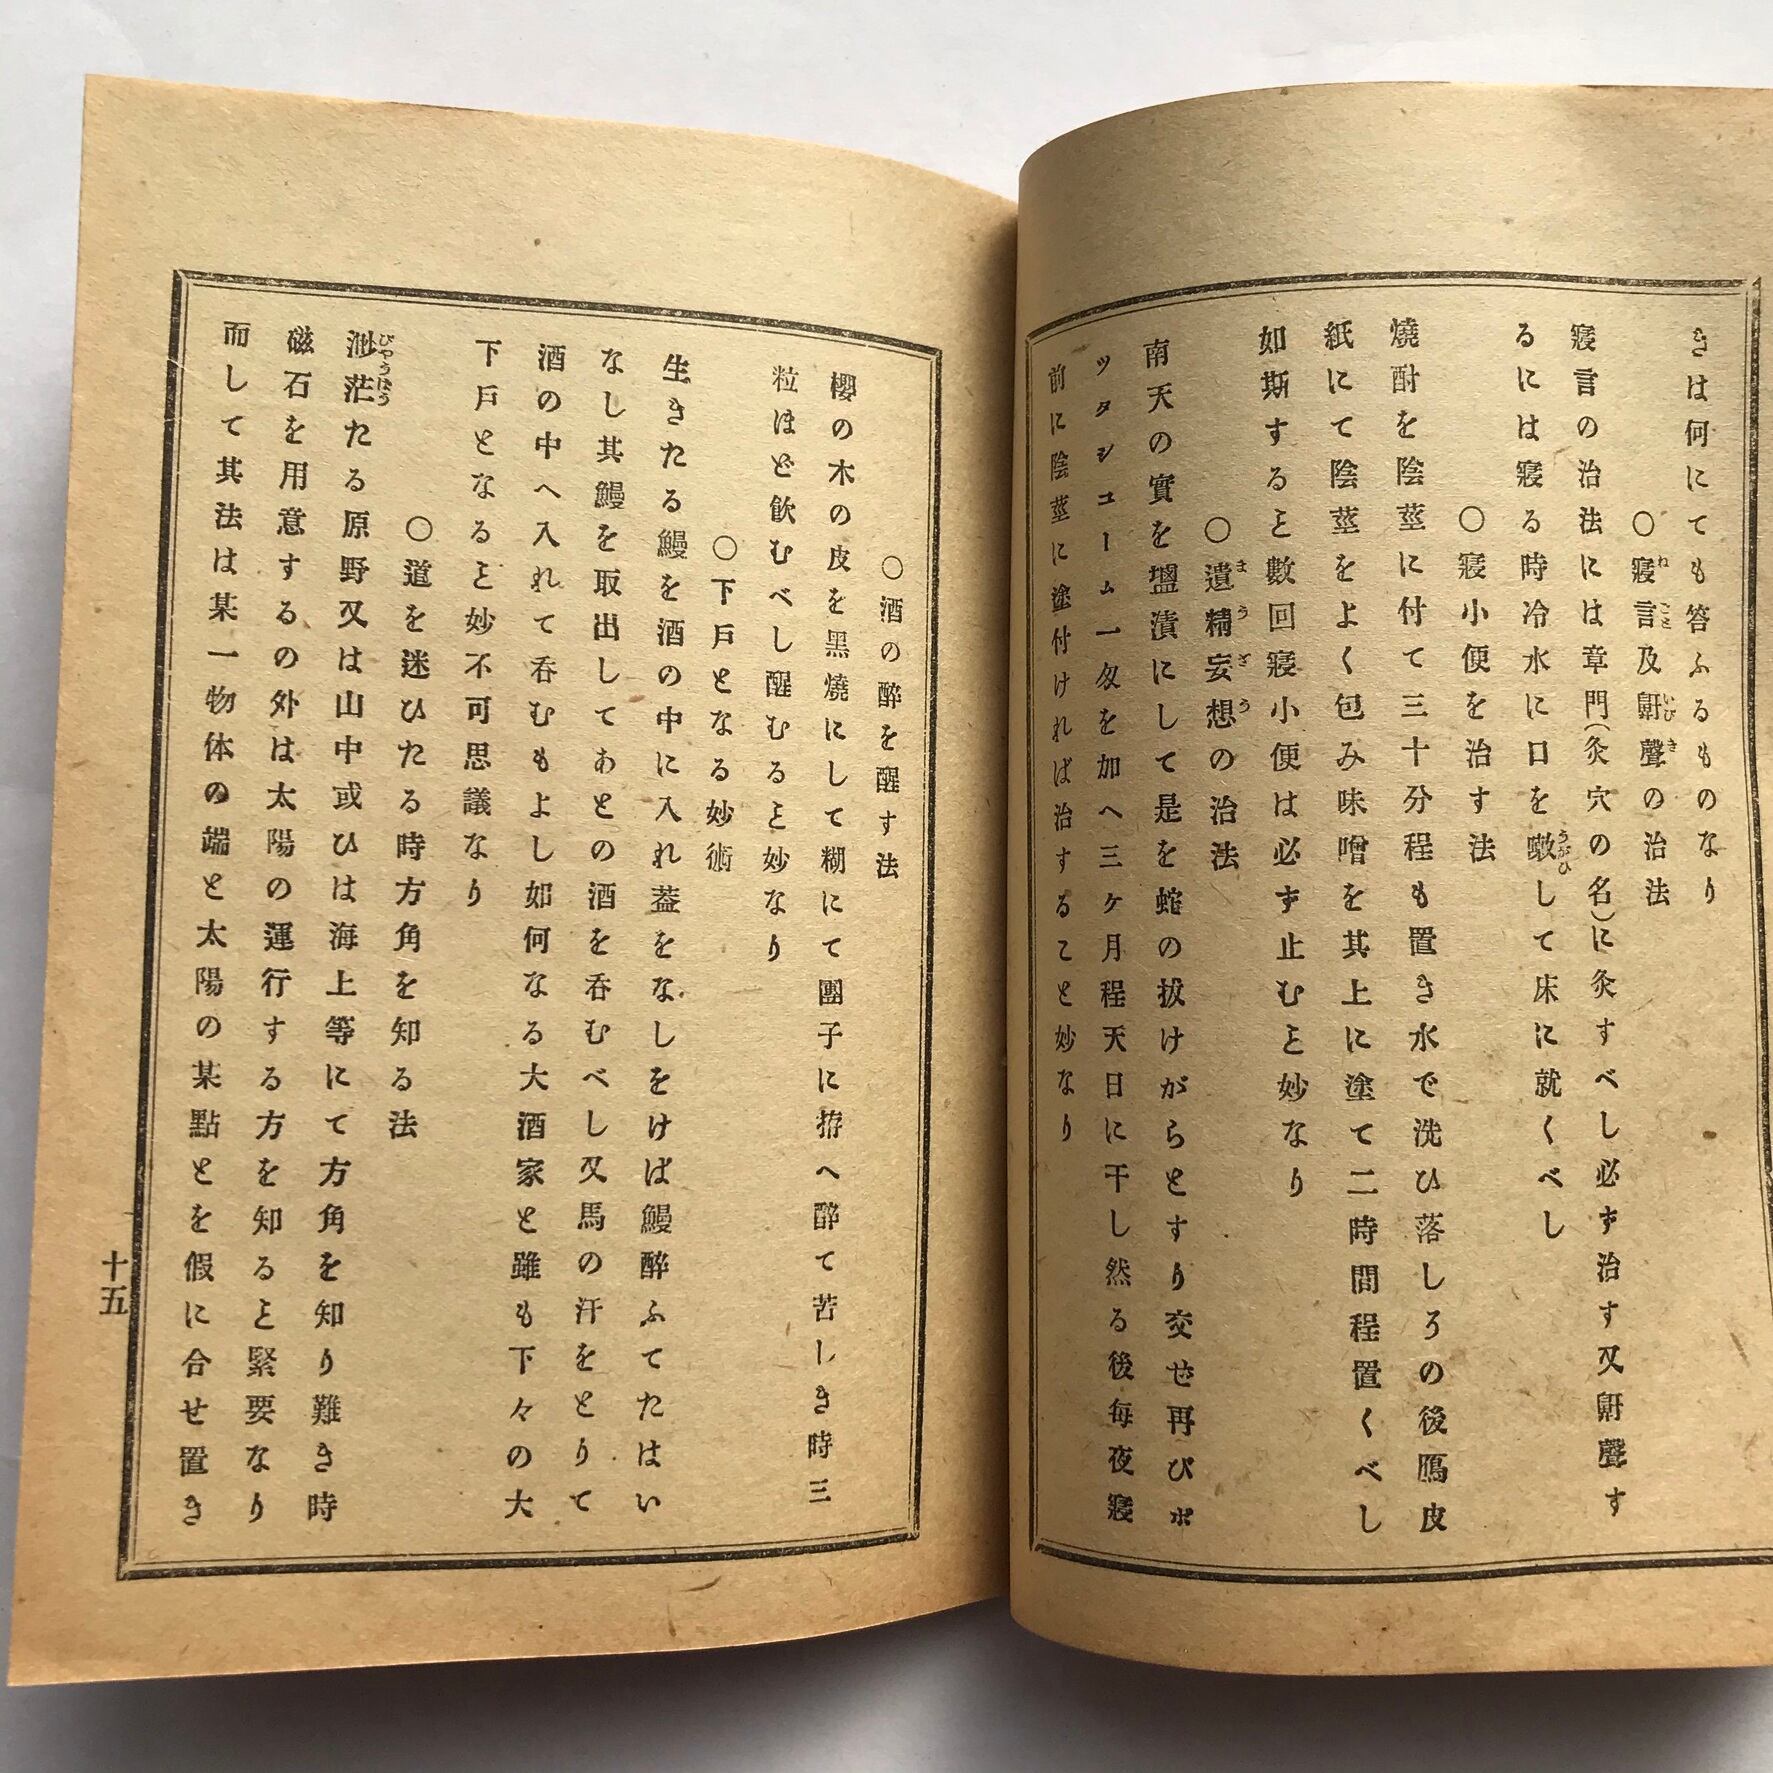 きは何にても答ふるものなり
○寢言及鼾聲の治法
寢言の治法には章門(灸穴の名)に灸すべし必ず治す又鼾聲す
るには寢る時冷水に口を嗽して床に就くべし
○寢小便を治す法
燒酎を陰莖に付て三十分程も置き水で洗ひ落しろの後鴈皮
紙にて陰莖をよく包み味噌を其上に塗て二時間程置くべし
如斯すると數回寢小便は必ず止むと妙なり
○遺精妄想の治法
南天の實を鹽漬にして是を蛇の拔けがらとすり交せ再びポ
ツタシユーム一匁を加へ三ヶ月程天日に干し然る後每夜寢
前に陰莖に塗付ければ治すること妙なり
○酒の醉を醒す法
櫻の木の皮を黑燒にして糊にて團子に拵へ醉て苦しき時三
粒ほど飮むべし醒むると妙なり
○下戶となる妙術
生きたる鰻を酒の中に入れ葢をなしをけば鰻醉ふてたはい
なし其鰻を取出してあとの酒を呑むべし又馬の汗をとりて
酒の中へ入れて呑むもよし如何なる大酒家と雖も下々の大
下戶となると妙不可思議なり
○道を迷ひたる時方角を知る法
渺茫たる原野又は山中或ひは海上等にて方角を知り難き時
磁石を用意するの外は太陽の運行する方を知ると緊要なり
而して其法は某一物体の端と太陽の某點とを假に合せ置き
十五